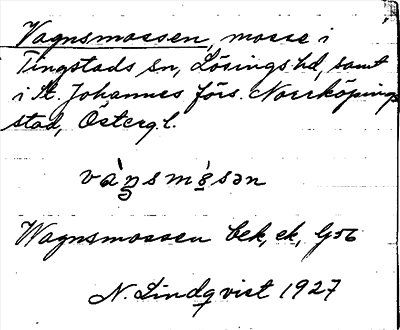 Vagnsmossen, mosse i
Tingstads sn, Lösings hd, samt
i St. Johannes förs. Norrköpings
stad, Östergl.
Wagnsmossen bek, ek,
N. Lindqvist 1927